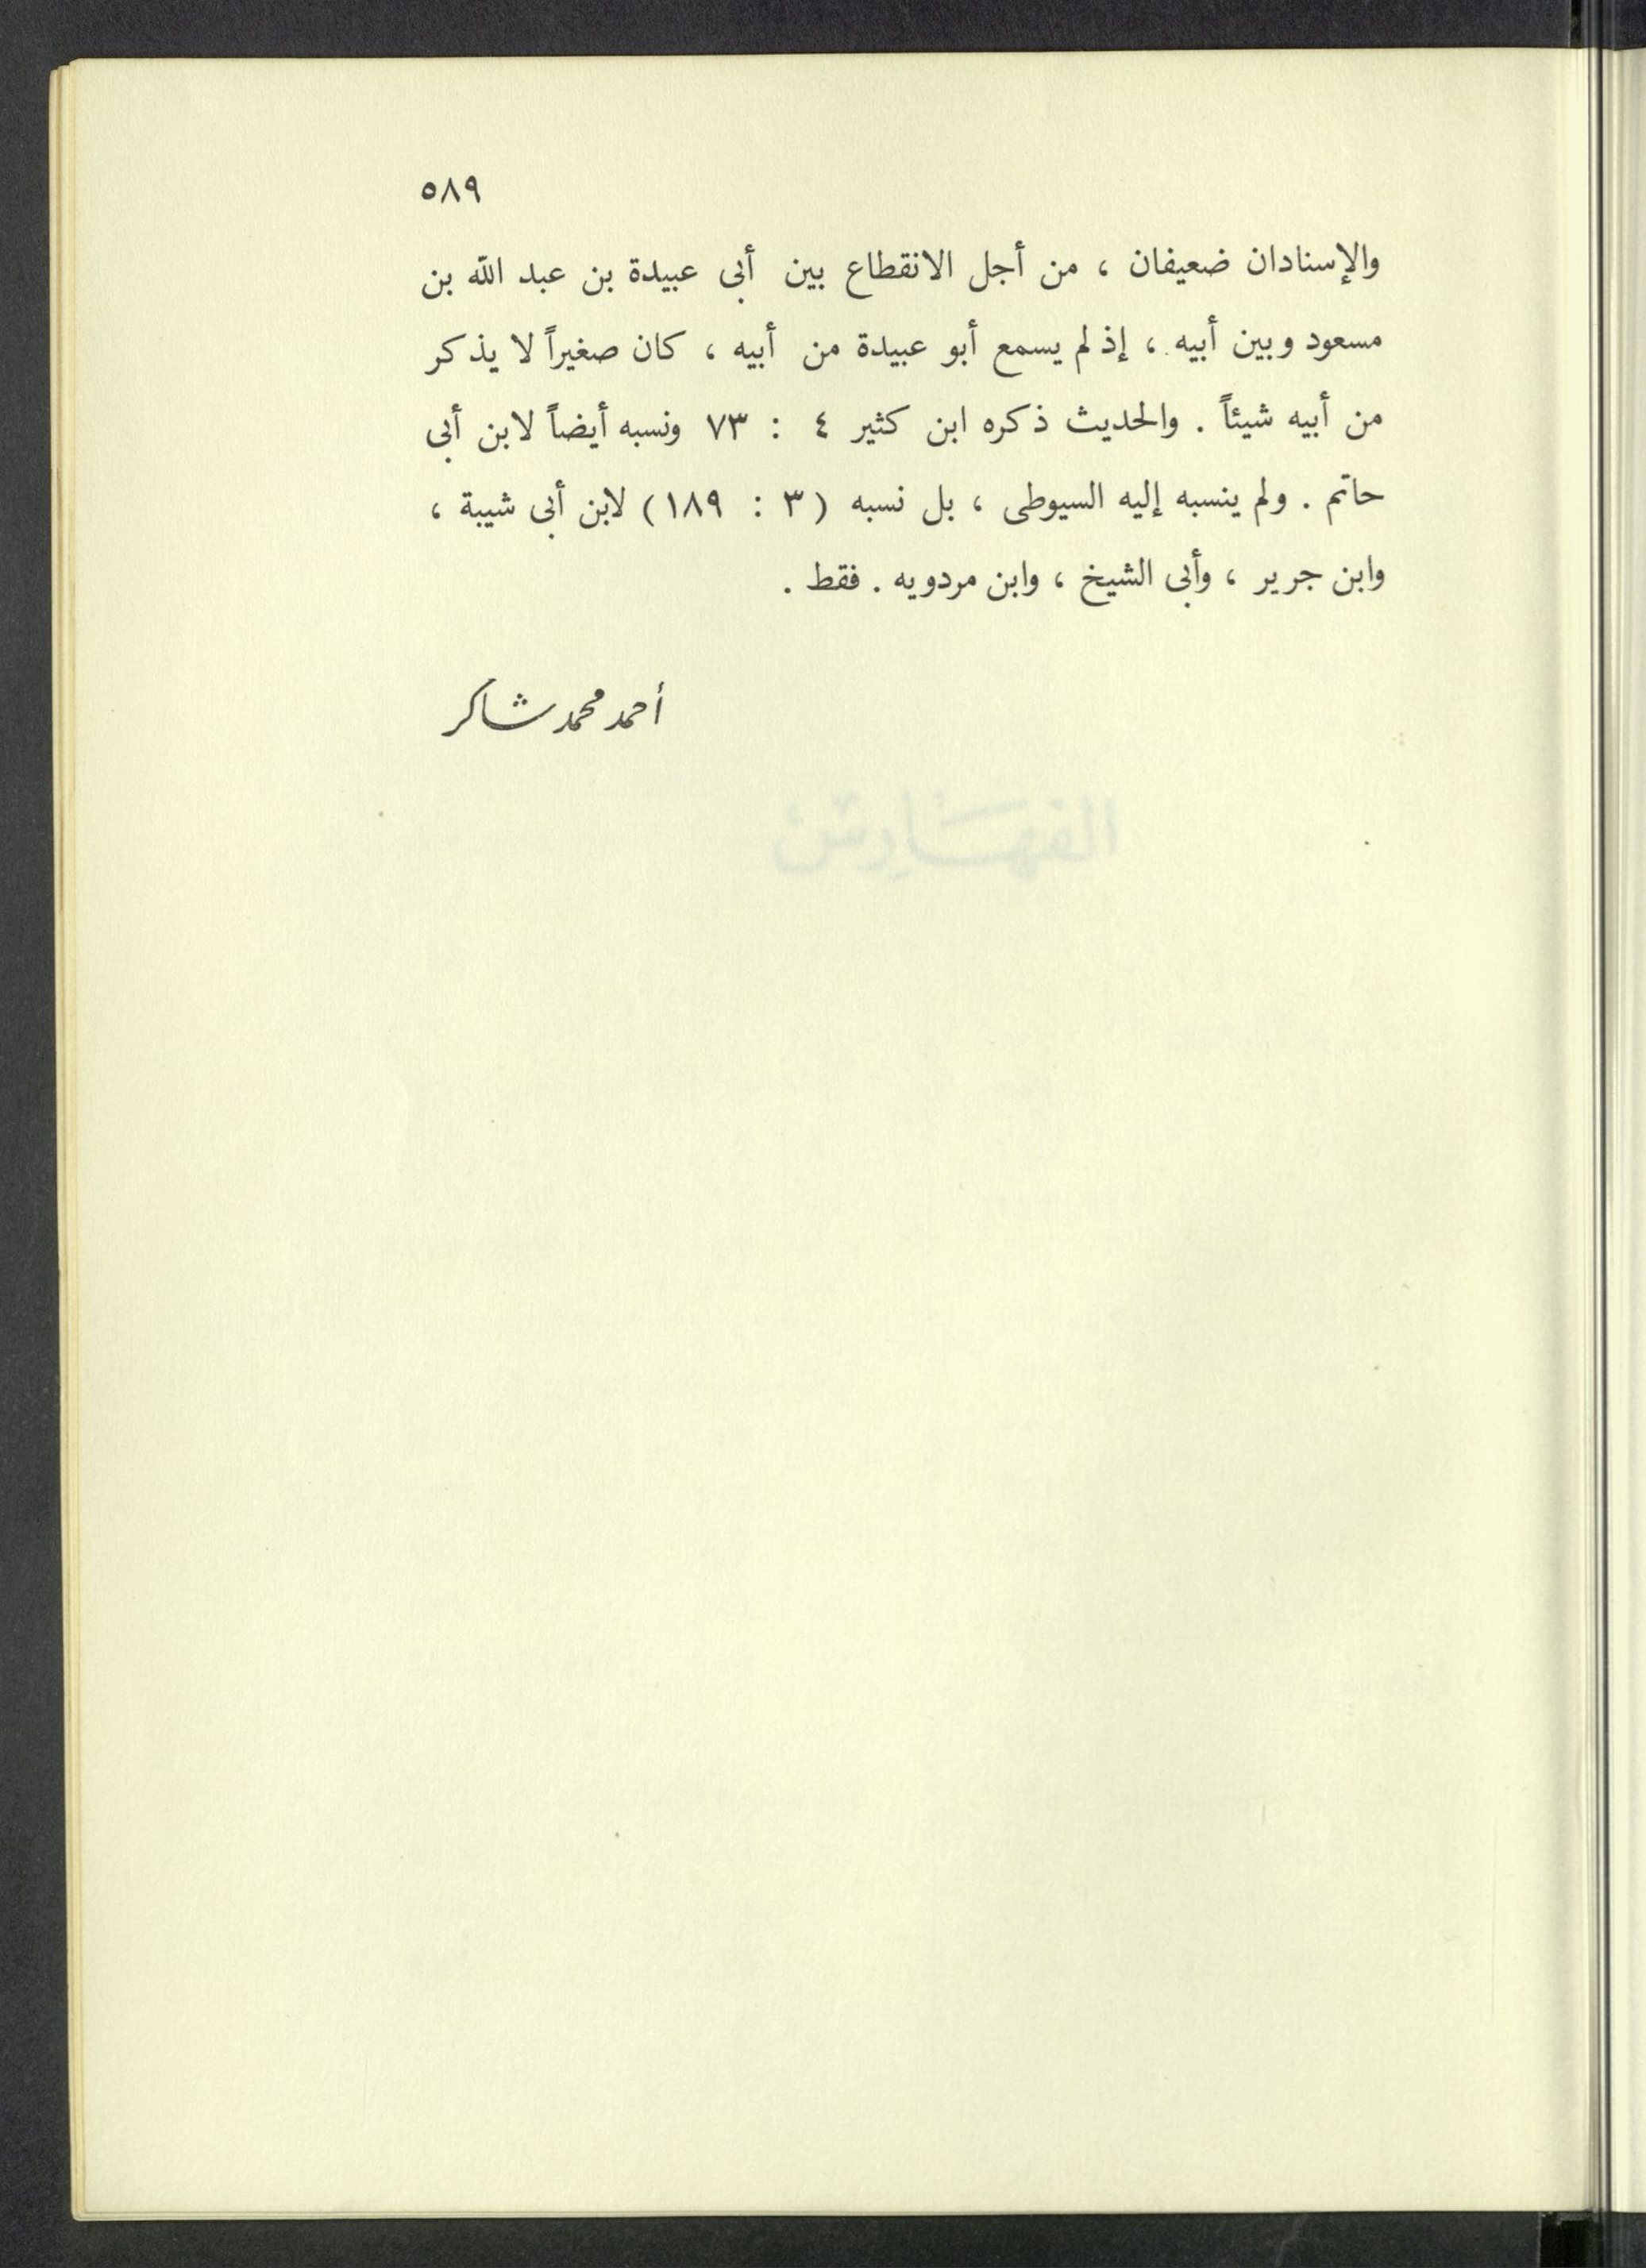 ٥٨٩
والإسنادان ضعيفان ، من أجل الانقطاع بين أبى عبيدة بن عبد الله بن
مسعود وبين أبيه ، إذ لم يسمع أبو عبيدة من أبيه ، كان صغيراً لا يذكر
من أبيه شيئاً . والحديث ذكره ابن كثير ٤ : ٧٣ ونسبه أيضاً لابن أبى
حاتم . ولم ينسبه إليه السيوطى ، بل نسبه (٣ : ١٨٩) لابن أبى شيبة ،
وابن جرير ، وأبى الشيخ ، وابن مردويه . فقط .
أحمد محمد شاكر
الفهارس